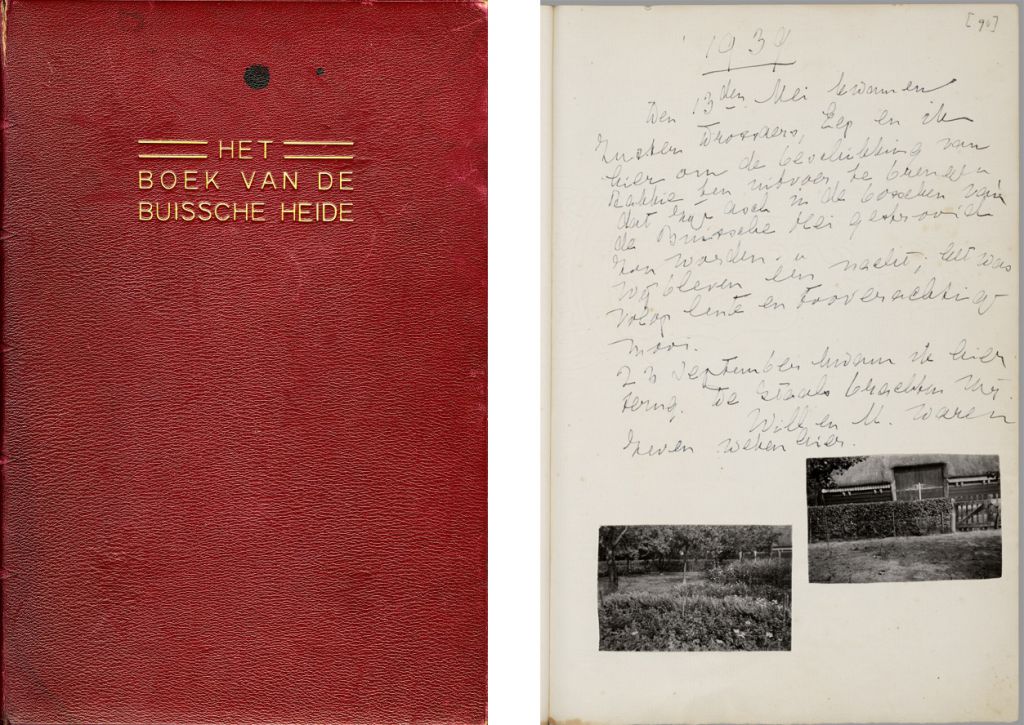 HET
BOEK VAN DE
BUISSCHE HEIDE
[90]
1939
Den 13den Mei kwamen
Zuster Drossaers, Eep en ik
hier om de beschikking van
ten uitvoer te brengen
dat zijn asch in de bosschen van
de Buissche Hei gestrooid
zou worden.
Wij bleven een nacht, het was
volop lente en tooverachtig
mooi.
23 September kwam ik hier
terug. De Staals brachten mij.
Will en M. waren
zeven weken hier.